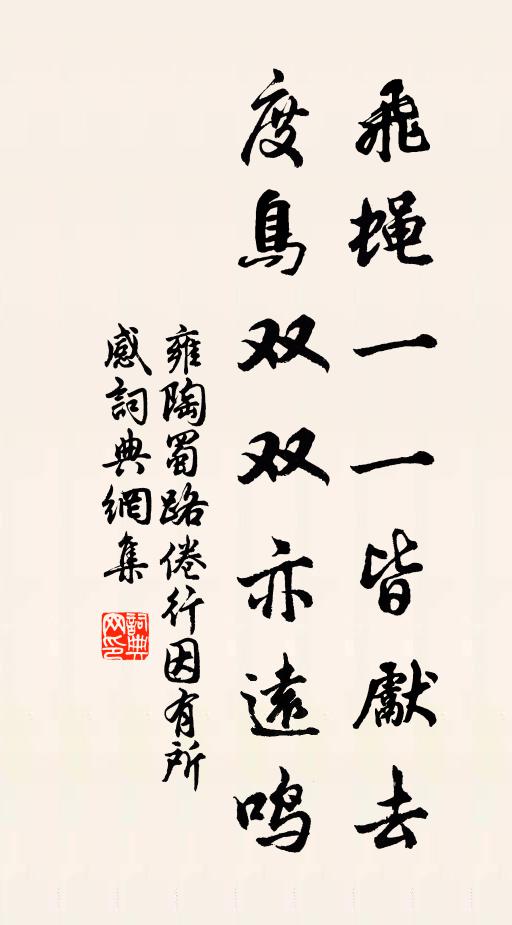 飛蠅一一皆獻去
度鳥双双亦遠鳴
雍陶蜀路倦行因有所
感詞典網集
詞典网印